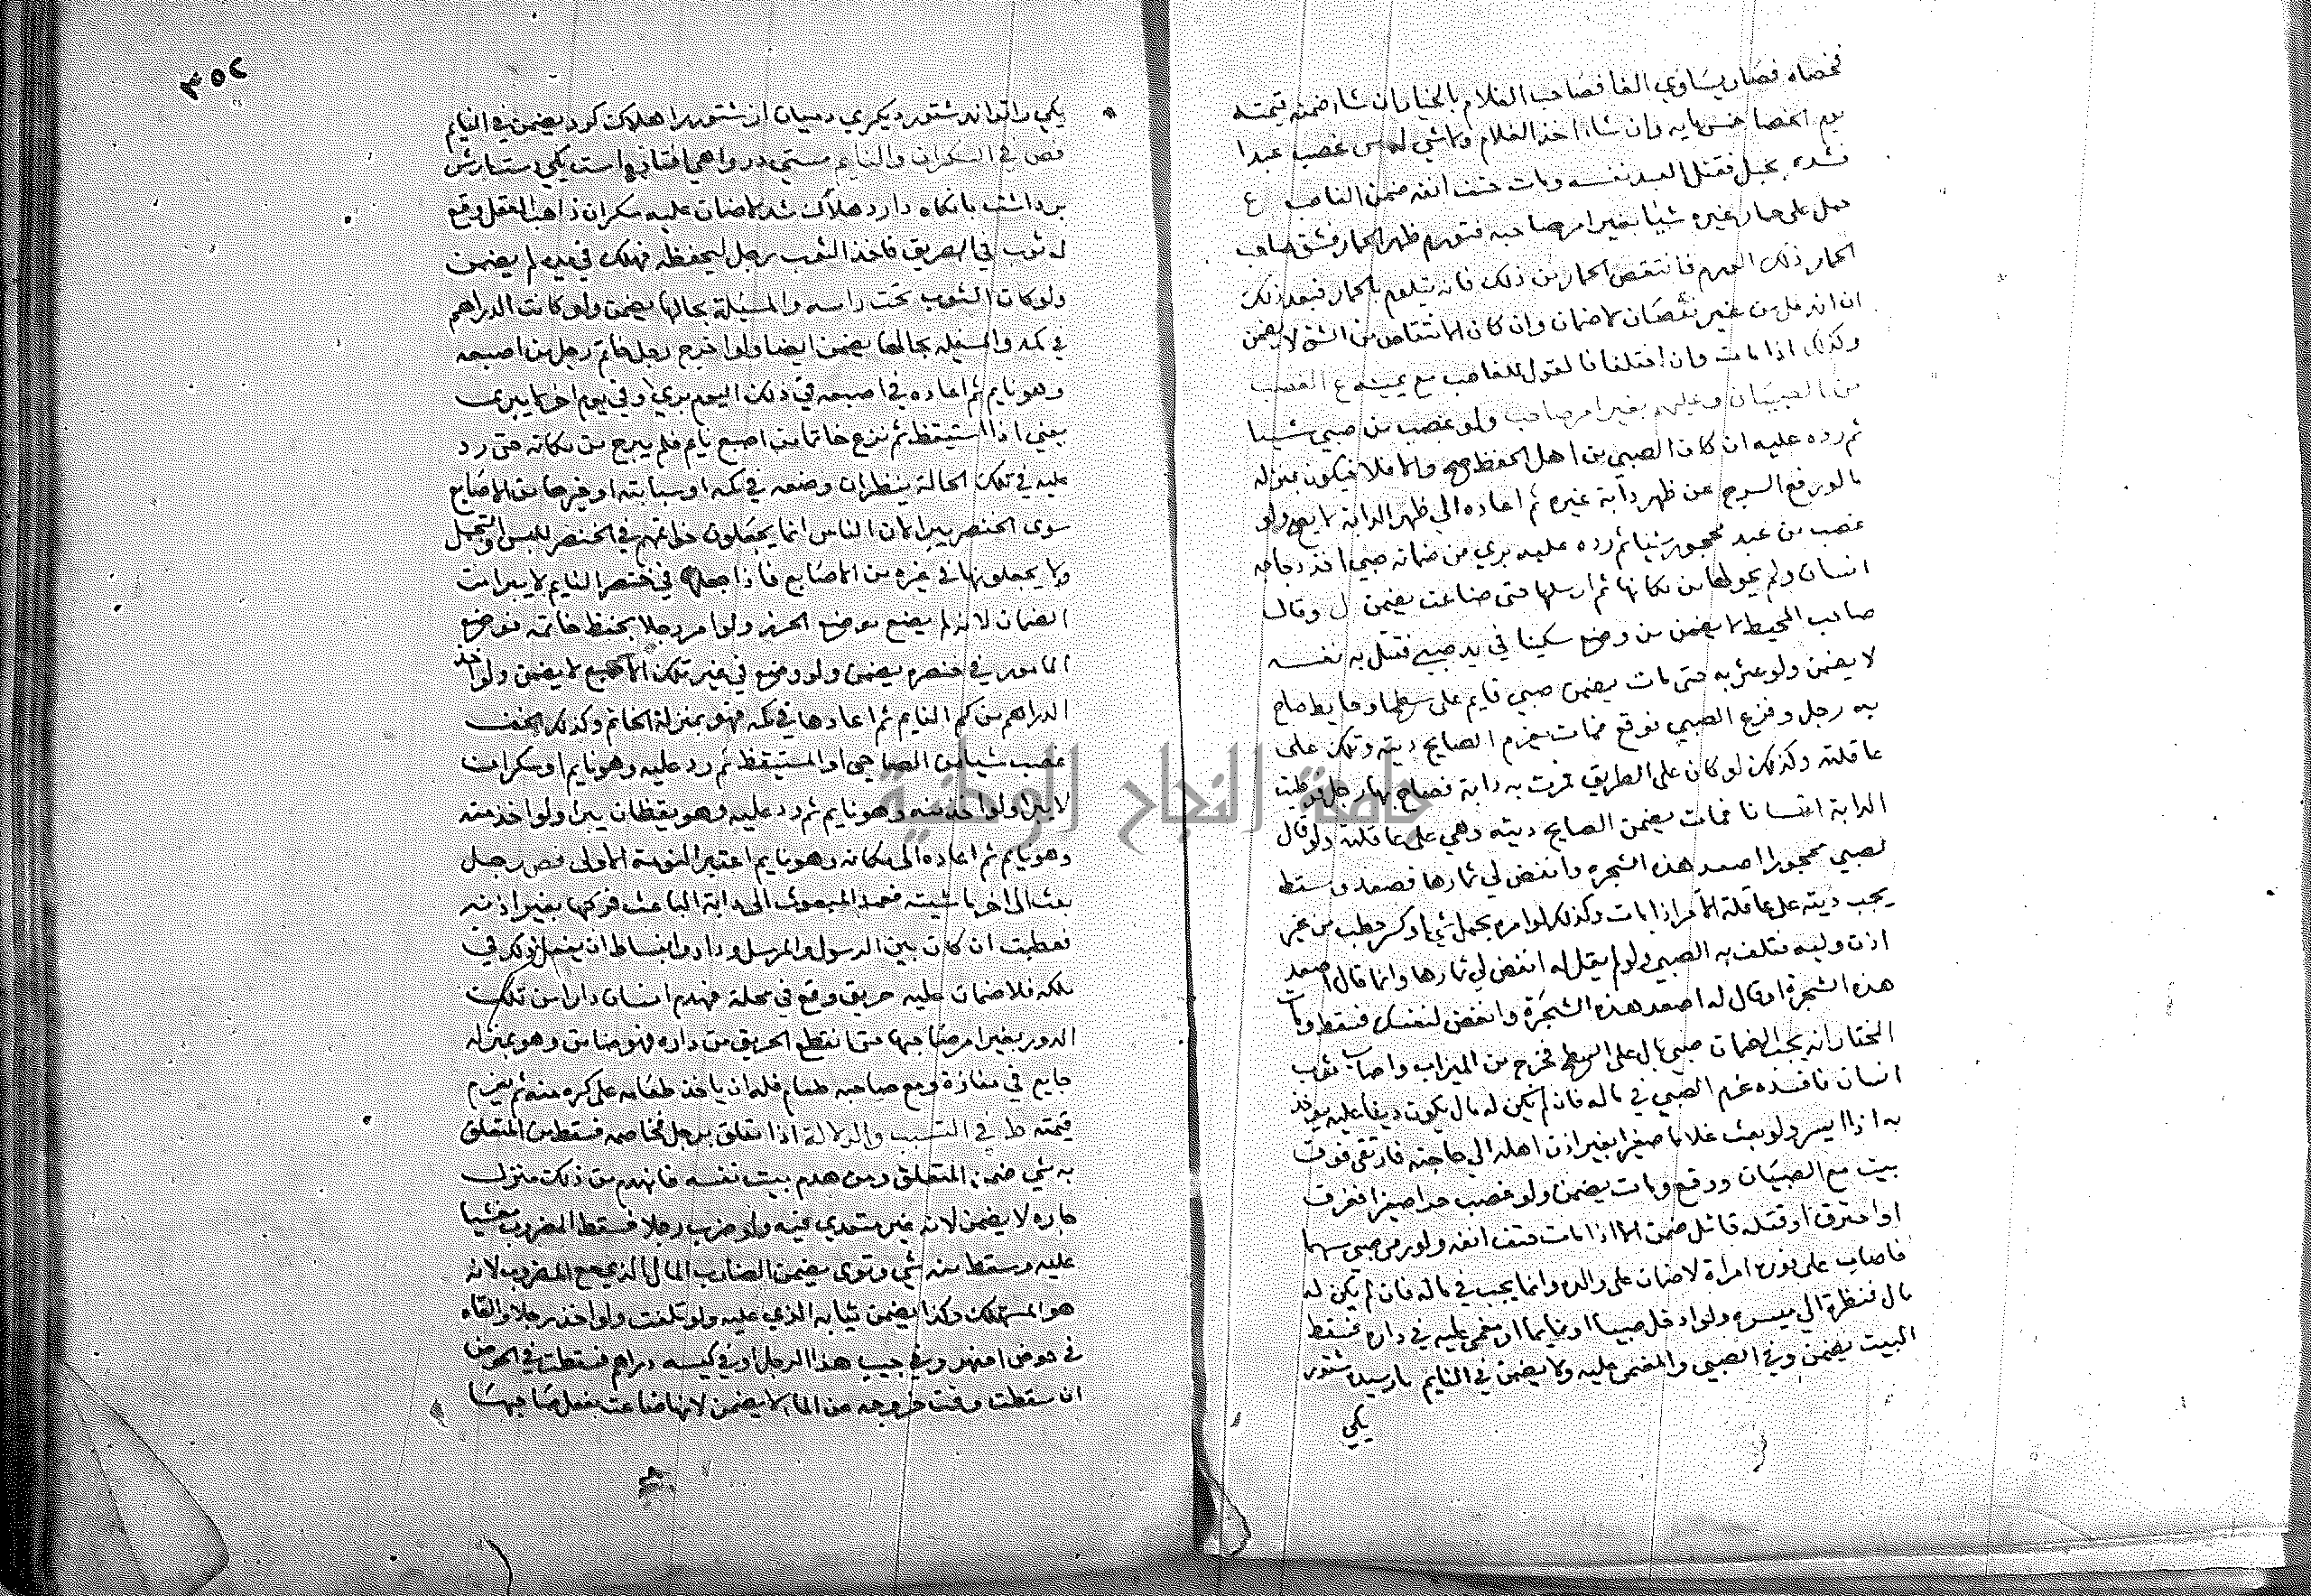 فخصاه فصار يساوي الفا فصاحب الغلام بالخيار ان شا ضمنه قيمته
يوم الخصا خمسمايه وان شاء اخذ الغلام ولا شي له من غصب عبدا
فشده بحبل فقتل العبد نفسه ومات حتف انفه ضمن الغاصب ع
حمل على حمار غيره شيًا بغير امر صاحبه فتورم ظهر الحمار فشق صاحب
الحمار ذلك الورم فانتقص الحمار من ذلك فانه يتلوم بالحمار فبعد ذلك
ان اندمل من غير نقصان لا ضمان وان كان الانتقاص من الشق لا يضمن
وكذلك اذا مات وان اختلفا فالقول للغاصب مع يمينه ع الغصب
من الصبيان وعليهم بغير امر صاحب ولو غصب من صبي شيئا
ثم رده عليه ان كان الصبي من اهل الحفظ صح والا فلا فيكون بمنزله
ما لو رفع السرج عن ظهر دابة غيره ثم اعاده الي ظهر الدابة لا يبرا ولو
غصب من عبد محجور شيئا ثم رده عليه بري من ضمانه صبي اخذ دجاجه
انسان ولم يحولها من مكانها ثم ارسلها حتى ضاعت يضمن ل وقال
صاحب المحيط لا يضمن من وضع سكينا في يد صبي فقتل به نفسه
لا يضمن ولو عثر به حتى مات يضمن صبي قايم على سطح او حايط صاح
به رجل وفزع الصبي فوقع فمات يغرم الصايح ديته وتلك على
عاقلته وكذلك لو كان على الطريق فمرت به دابة فصاح بها رجل فوطيت
الدابة انسانا فمات يضمن الصايح ديته وهي على عاقلته ولو قال
لصبي محجور اصعد هذه الشجره وانفض لي ثمارها فصعد وسقط
يجب ديته على عاقلة الامر اذا مات وكذلك لو امره بحمل شي او كسر حطب من غير
اذن وليه فتلف به الصبي ولو لم يقل له انفض لي ثمارها وانما قال اصعد
هذه الشجرة او قال له اصعد هذه الشجرة وانفض لنفسك فسقط ومات
المختار انه يجب الضمان صبي بال على السطح فخرج من الميزاب واصاب ثوب
انسان فافسده غرم الصبي في ماله فان لم يكن له مال يكون دينا عليه يوخذ
به اذا ايسر ولو بعث غلاما صغيرا بغير اذن اهله الي حاجته فارتقى فوق
بيت مع الصبيان ووقع ومات يضمن ولو غصب حرا صغيرا فغرق
او احترق او قتله قاتل ضمن الا اذا مات حتف انفه ولو رمى صبي سهما
فاصاب على فوره امراة لا ضمان على والده وانما يجب في ماله فان لم يكن له
مال فنظرة الي ميسره ولو ادخل صبيا او نايما او مغمى عليه في داره فسقط
البيت يضمن وفي الصبي والمغمى عليه ولا يضمن في النايم
يكي
٣٥٢
يكي را تواند شتور ديكري درميان ان شتوررا هلاك كرد يضمن في النايم
فص في السكران والنايم مستى در راهى افتاده است يكي دستارش
برداشت تا نكاه دارد هلاك شد لا ضمان عليه سكران ذاهب العقل وقع
له ثوب في الطريق فاخذ الثوب رجل ليحفظه فهلك في يده لم يضمن
ولو كان الثوب تحت راسه والمسيلة بحالها يضمن ولو كانت الدراهم
في كمه والمسيله بحالها يضمن ايضا ولو اخرج رجل خاتم رجل من اصبعه
وهو نايم ثم اعاده في اصبعه في ذلك اليوم بري وفي يوم اخر لا يبرى
يعني اذا استيقظ ثم نزع خاتما من اصبع نايم فلم يبرح من مكانه حتى رد
عليه في تلك الحالة ينظر ان وضعه في كمه او سبابته او غيرها من الاصابع
سوى الخنصر يبرا لان الناس انما يجعلون خواتمهم في الخنصر للبس والتجمل
ولا يجعلونها في غيره من الاصابع فاذا جعلها في خنصر النايم لا يبرا من
الضمان لانه لم يضع موضع الحرز ولو امر رجلا بحفظ خاتمه فوضع
المامور في خنصره يضمن ولو وضع في غير تلك الاصبع لا يضمن ولو اخذ
الدراهم من كم النايم ثم اعادها في كمه فهو بمنزلة الخاتم وكذلك الخف
غصب شيا من الصاحي او المستيقظ ثم رد عليه وهو نايم او سكران
لا يبرا ولو اخذ منه وهو نايم ثم رد عليه وهو يقظان يبرا ولو اخذ منه
وهو نايم ثم اعاده الى مكانه وهو نايم اعتبر النومة الاولى فص رجل
بعث الى اخر بماشيته فعمد المبعوث الى دابة الباعث فركبها بغير اذنه
فعطبت ان كان بين الرسول والمرسل وداد وانبساط ان يفعل ذلك في
ملكه فلا ضمان عليه حريق وقع في محلة فهدم انسان دارا من تلك
الدور بغير امر صاحبها حتى انقطع الحريق من داره فهو ضامن وهو بمنزله
جايع في مفازة ومع صاحبه طعام فله ان ياخذ طعامه على كره منه ثم يغرم
قيمته ط في التسبب والدلالة اذا تعلق برجل فخاصمه فسقط من المتعلق
به شي ضمن المتعلق ومن هدم بيت نفسه فانهدم من ذلك منزل
جاره لا يضمن لانه غير متعدي فيه ولو ضرب رجلا فسقط المضروب مغشيا
عليه وسقط منه شي وتوى يضمن الضارب المال الذي مع المضروب لانه
هو المستهلك وكذا يضمن ثيابه الذي عليه ولو تلفت ولو اخذ رجلا والقاه
في حوض او نهر وفي جيب هذا الرجل او في كيسه دراهم فسقطت في الحوض
ان سقطت وقت خروجه من الماء لا يضمن لانها ضاعت بفعل صاحبها
جامعة النجاح الوطنية